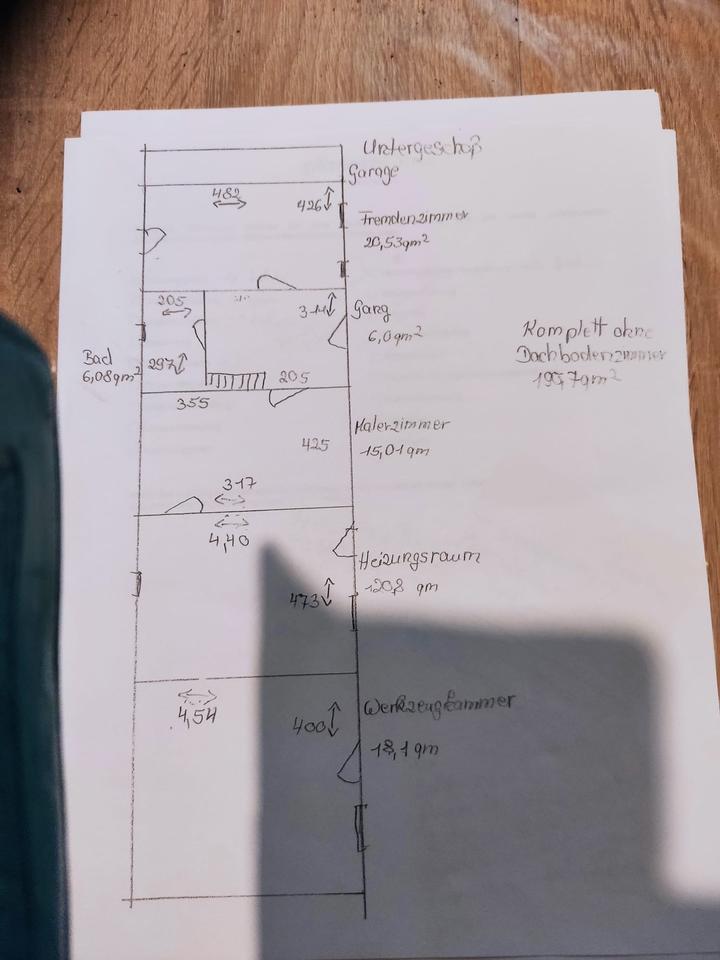 Untergeschoß
Garage
482
426
Fremdenzimmer
20,53qm²
205
314
Gang
6,0qm²
Bad
6,08qm²
297
205
355
Komplett ohne
Dachbodenzimmer
qm²
Malerzimmer
425
15,01qm
317
4,40
Heizungsraum
qm
473
4,54
400
Werkzeugkammer
18,1qm